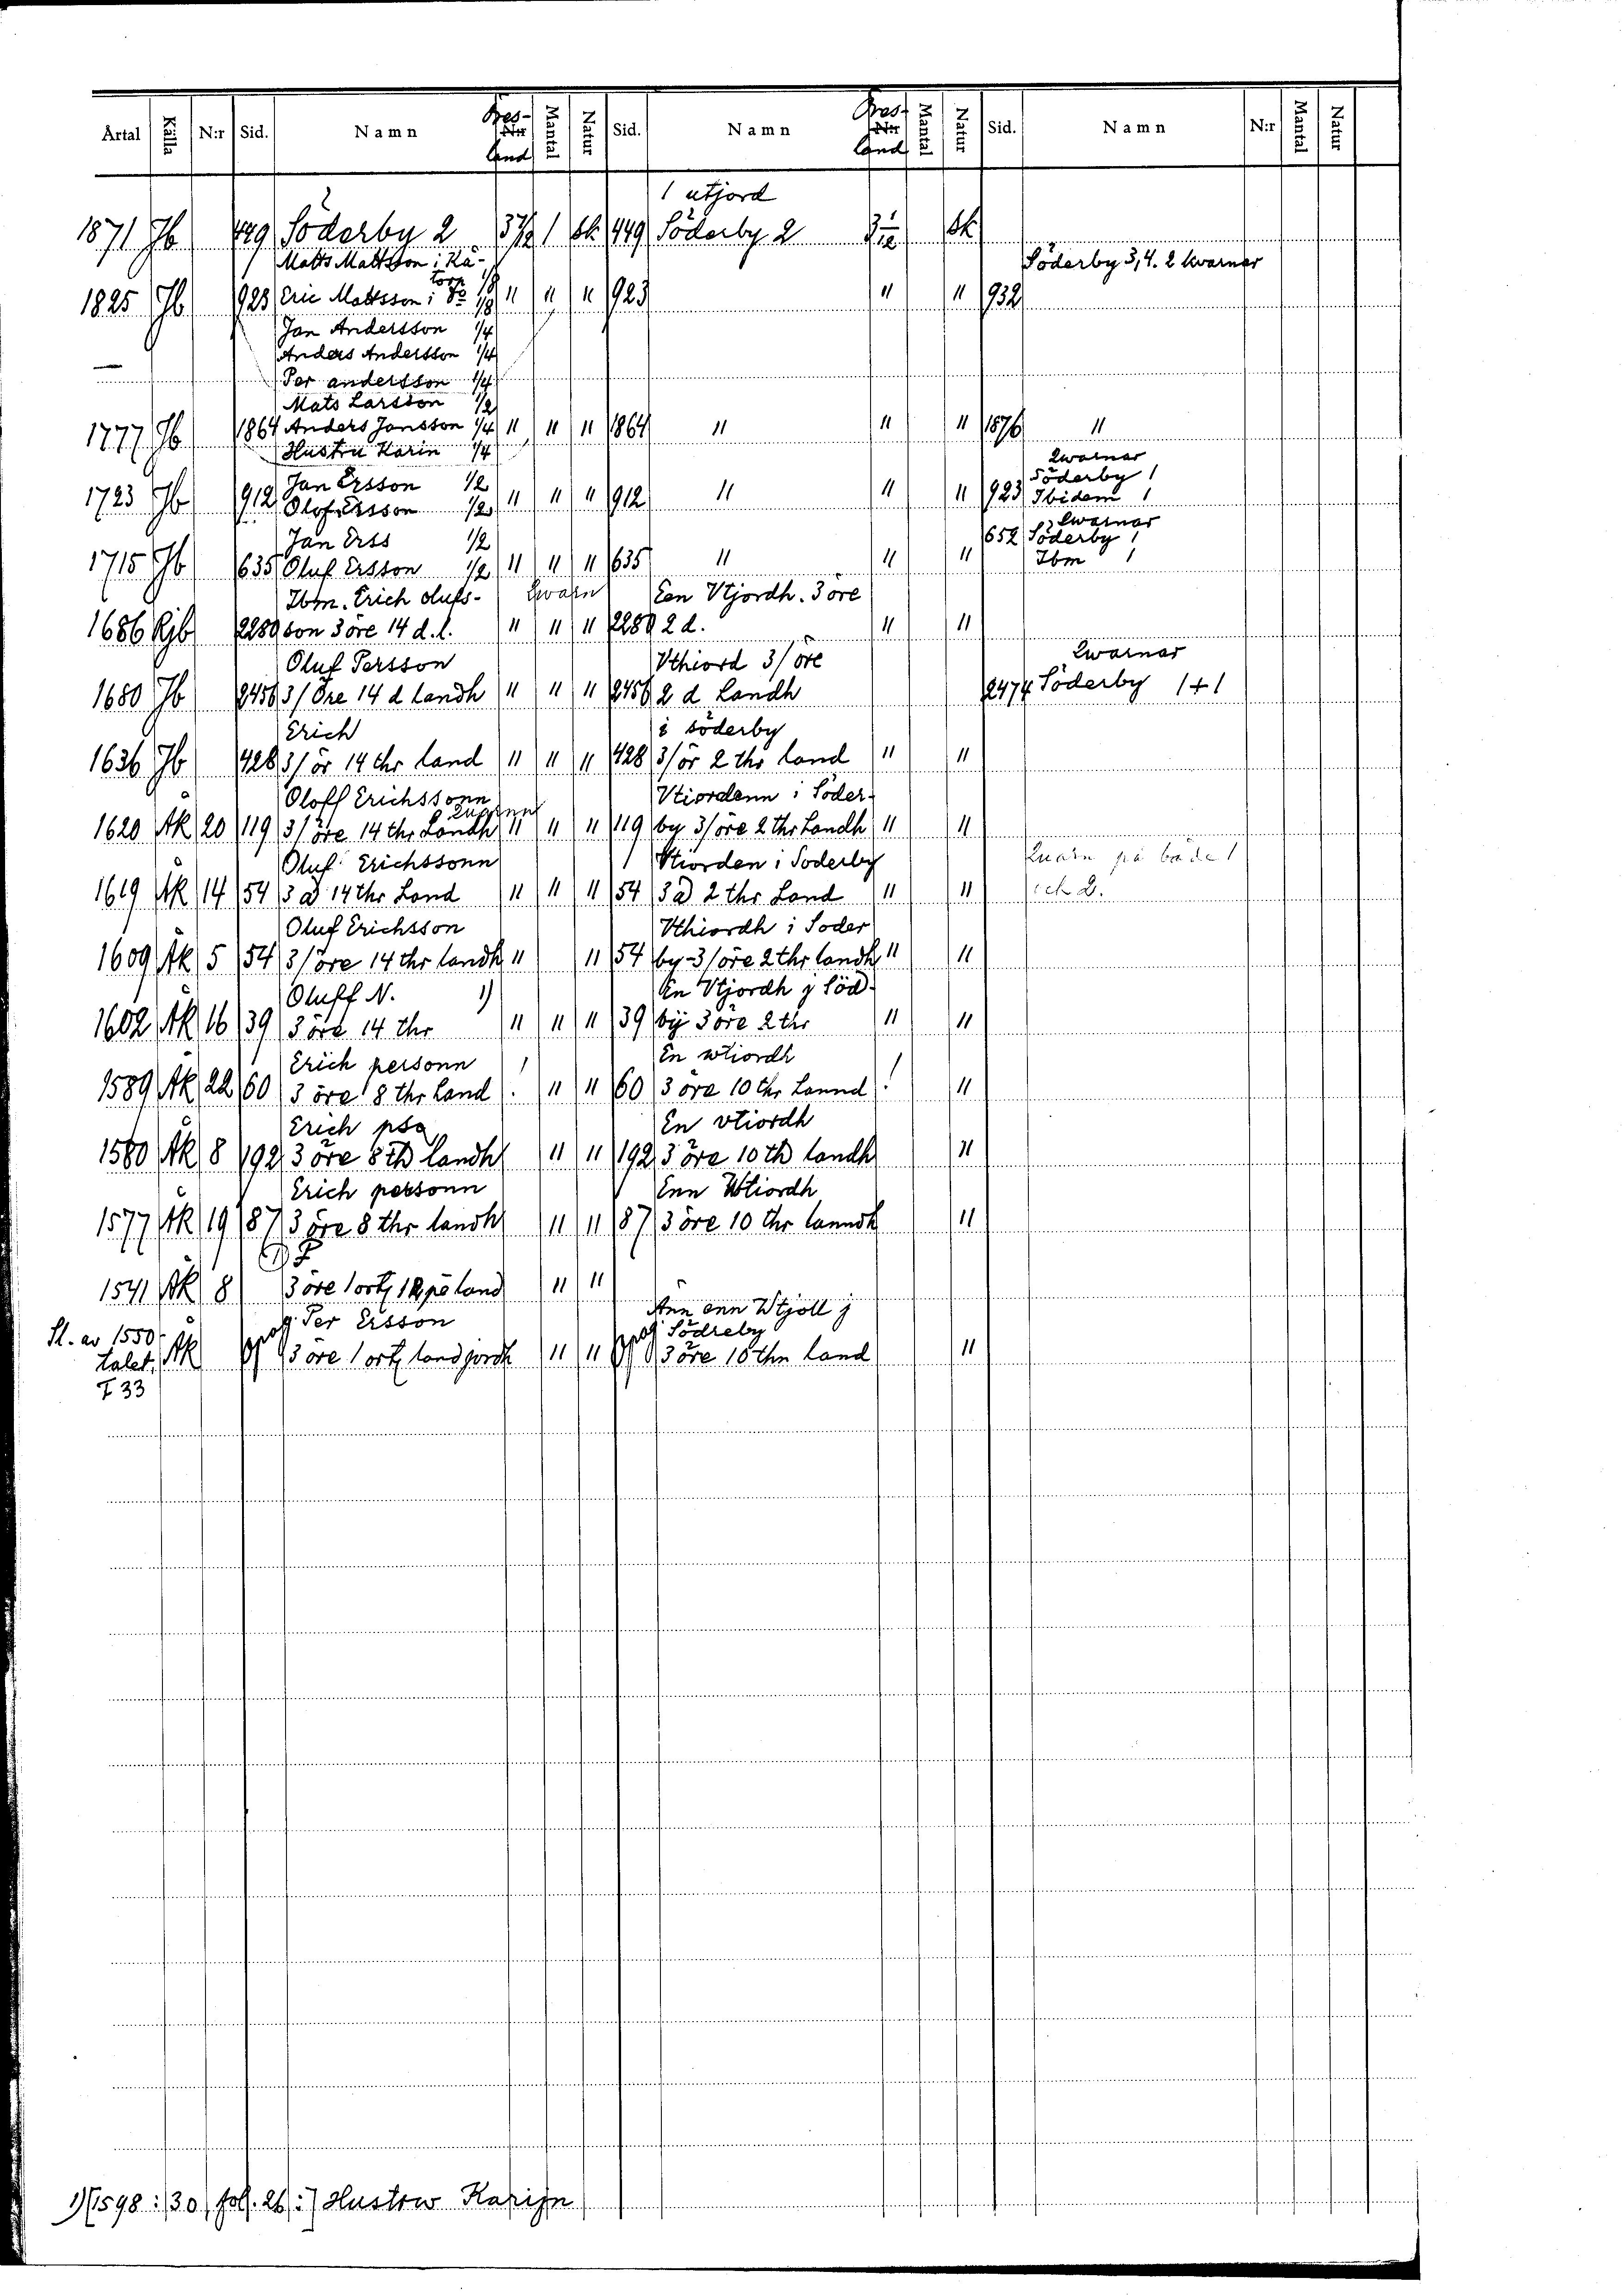 Årtal Källa N:r Sid. Namn Öres- land Mantal Natur Sid. Namn Öres- land Mantal Natur Sid. Namn N:r Mantal Natur
1 utjord
1871 Jb 449 Söderby 2 1 sk 449 Söderby 2 sk
Matts Mattsson i Kä-
torp 1/8
Söderby 3, 4. 2 kvarnar
1825 Jb 923 Eric Mattsson i Do 1/8 " " " 923 " " 932
Jan Andersson 1/4
Anders Andersson 1/4
Per andersson 1/4
Mats Larsson 1/2
1777 Jb 1864 Anders Jansson 1/4 " " " 1864 " " " 1876 "
Hustru Karin 1/4
Qwarnar
Jan Ersson 1/2
Söderby 1
1723 Jb 912 Olof Ersson 1/2 " " " 912 " " " 923 Ibidem 1
Qwarnar
Jan Erss 1/2
652 Söderby 1
1715 Jb 635 Oluf Ersson 1/2 " " " 635 " " " Ibm 1
Ibm. Erich olufs- Qwarn Een Vtjordh. 3 öre
1686 Rjb 2289 son 3 öre 14 d. l. " " " 2289 2 d. " "
Oluf Persson Vthiord 3/ öre
Qwarnar
1680 Jb 2456 3/ Öre 14 d Landh " " " 2456 2 d Landh 2474 Söderby 1+1
Erich i söderby
1636 Jb 428 3/ ör 14 thr land " " " 428 3/ ör 2 thr land " "
Oloff Erichssonn Vtiordenn i Söder-
Quernn
1620 Äk 20 119 3/ öre 14 thr Landh " " " 119 by 3/ öre 2 thr Landh " "
Oluf Erichssonn Vtiorden i Soderby Quarn på båda 1
1619 Äk 14 54 3 14 thr Land " " " 54 3 2 thr Land " " och 2.
Oluf Erichsson Vthiordh i Soder
1609 Äk 5 54 3/ öre 14 thr landh " " 54 by- 3/ öre 2 thr landh " "
Oluff N. 1) En Vtjordh j Söd-
1602 Äk 16 39 3 öre 14 thr " " " 39 bij 3 öre 2 thr " "
Erich personn En wtiordh
1589 Äk 22 60 3 öre 8 thr Land ! " " 60 3 öre 10 thr Lannd ! "
Erich psa En vtiordh
1580 Äk 8 192 3 öre 8 th landh " " 192 3 öre 10 th landh "
Erich personn Enn Wtiordh
1577 Äk 19 87 3 öre 8 thr landh " " 87 3 öre 10 thr lanndh "
1541 Äk 8 3 öre 1 ort land " "
Ann enn Wtjoll j
Sl. av 1550- Per Ersson Södreby
talet Äk 3 öre 1 ort land jordh " " 3 öre 10 thn land "
F 33
1) [1598:30, fol. 26:] Hustrw Karijn